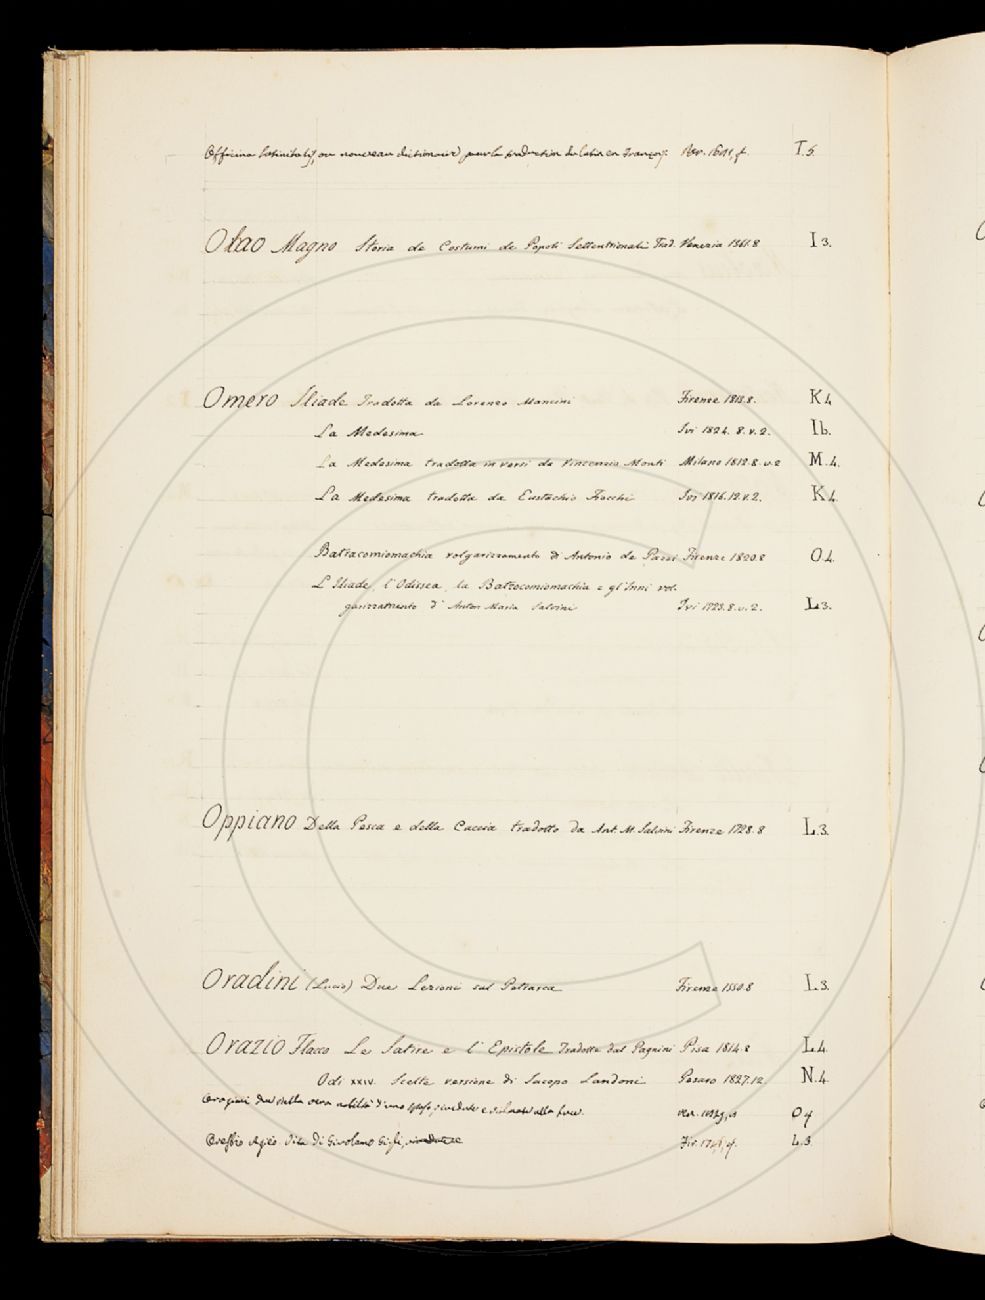 Officina latinitatis, ou nouveau dictionaire pour la traduction du latin en françois. T. 5.
Olao Magno Storia de Costumi de Popoli Settentrionali Trad. Venezia 1561. 8 I 3.
Omero Iliade Tradotta da Lorenzo Mancini Firenze 1818. 8. K 4
La Medesima Ivi 1824. 8. v. 2. I b.
La Medesima tradotta in versi da Vincenzio Monti Milano 1812. 8. v. 2 M. 4.
La Medesima tradotta da Eustachio Fiocchi Ivi 1816. 12. v. 2. K 4.
Batracomiomachia volgarizzamento di Antonio de Pazzi Firenze 1820. 8 O. 4.
L'Iliade, l'Odissea, la Batrocomiomachia e gl'Inni vol.
garizzamento d' Anton Maria Salvini Ivi 1723. 8. v. 2. L 3.
Oppiano Della Pesca e della Caccia tradotto da Ant. M. Salvini Firenze 1728. 8 L. 3.
Oradini (Lucio) Due Lezioni sul Petrarca Firenze 1550. 8 L. 3.
Orazio Flacco Le Satire e l'Epistole Tradotte dal Pagnini Pisa 1814. 8 L. 4.
Odi XXIV. Scelte versione di Jacopo Landoni Pesaro 1827. 12. N. 4.
della vera nobiltà
Oresbio Agieo Vita di Girolamo Gigli, L. 3.